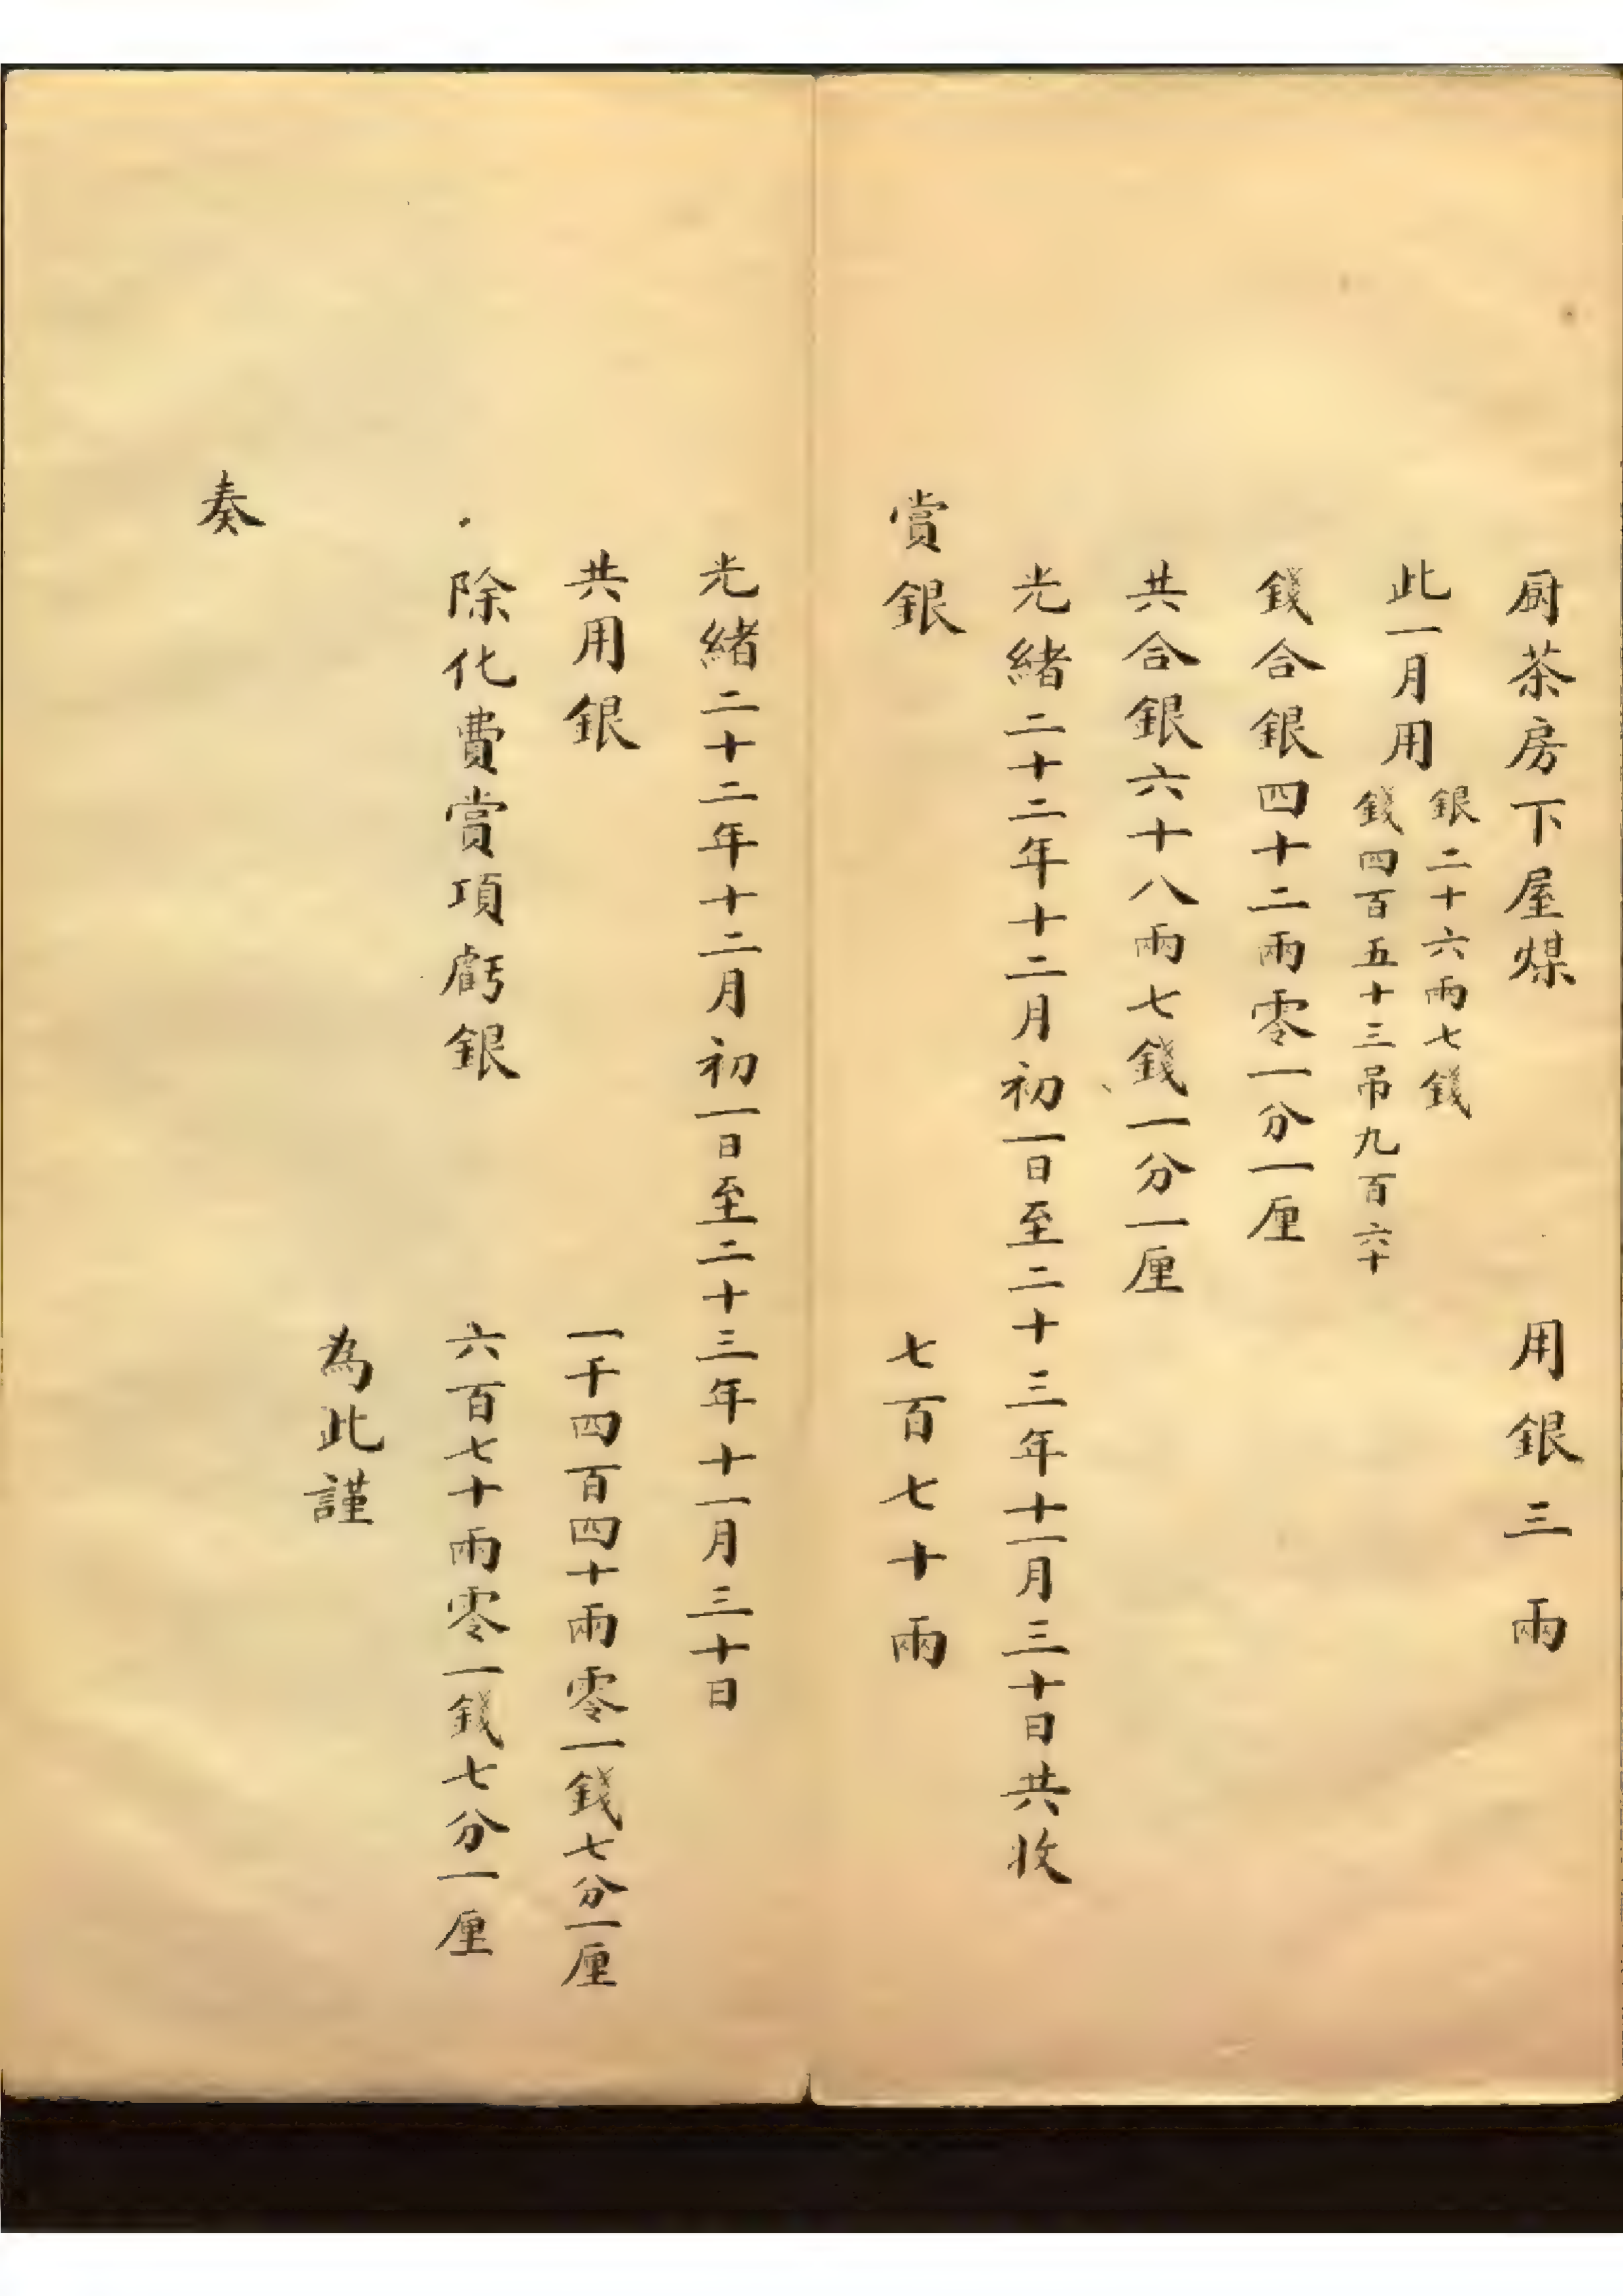 厨茶房下屋煤 用銀三兩
此一月用
銀二十六兩七錢
錢四百五十三吊九百六十
錢合銀四十二兩零一分一厘
共合銀六十八兩七錢一分一厘
光緒二十二年十二月初一日至二十三年十一月三十日共收
賞銀 七百七十兩
光緒二十二年十二月初一日至二十三年十一月三十日
共用銀 一千四百四十兩零一錢七分一厘
除化費賞項虧銀 六百七十兩零一錢七分一厘
為此謹
奏